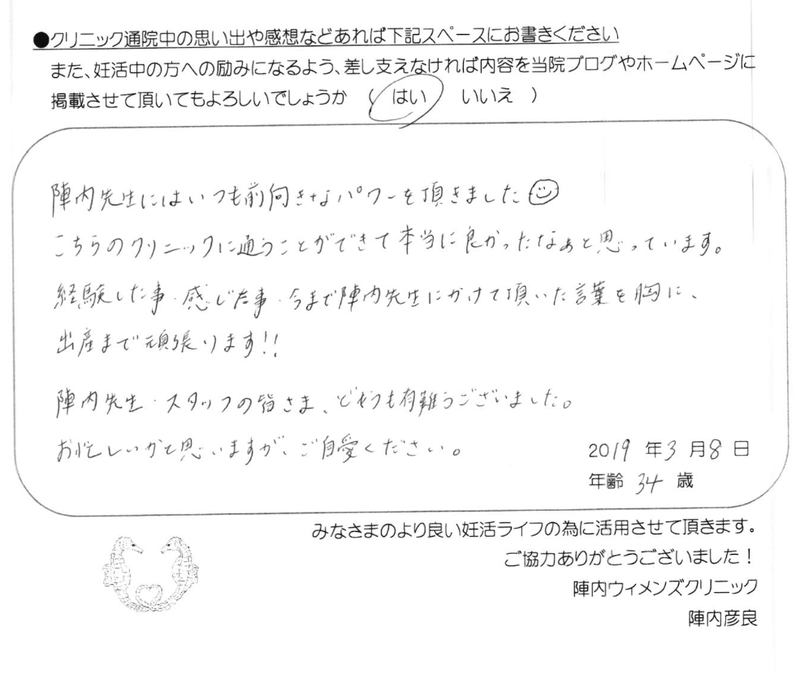 ●クリニック通院中の思い出や感想などあれば下記スペースにお書きください
また、妊活中の方への励みになるよう、差し支えなければ内容を当院ブログやホームページに
掲載させて頂いてもよろしいでしょうか （ はい　いいえ ）
陣内先生にはいつも前向きなパワーを頂きました
こちらのクリニックに通うことができて本当に良かったなぁと思っています。
経験した事・感じた事・今まで陣内先生にかけて頂いた言葉を胸に、
出産まで頑張ります!!
陣内先生・スタッフの皆さま、どうも有難うございました。
お忙しいかと思いますが、ご自愛ください。
2019 年 3 月 8 日
年齢 34 歳
みなさまのより良い妊活ライフの為に活用させて頂きます。
ご協力ありがとうございました！
陣内ウィメンズクリニック
陣内彦良